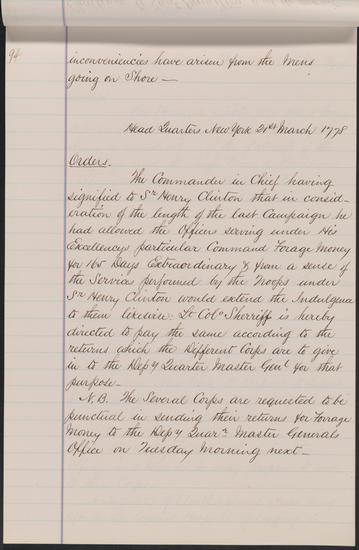 94
inconveniencies have arisen from the Mens
going on Shore —
Head Quarters New York 21st March 1778
Orders.
The Commander in Chief having
signified to Sr Henry Clinton that in consid-
eration of the length of the last Campaign he
had allowed the Officers serving under His
Excellencys particular Command Forage Money
for 165 Days Extraordinary & from a sense of
the Service performed by the Troops under
Sr Henry Clinton would extend the Indulgence
to them likewise. Lt Colo Sherriff is hereby
directed to pay the same according to the
returns which the Different Corps are to give
in to the Depy Quarter Master Genl for that
purpose—
N.B. The Several Corps are requested to be
punctual in sending their returns for Forrage
Money to the Depy Quarr Master Generals
Office on Tuesday Morning next—